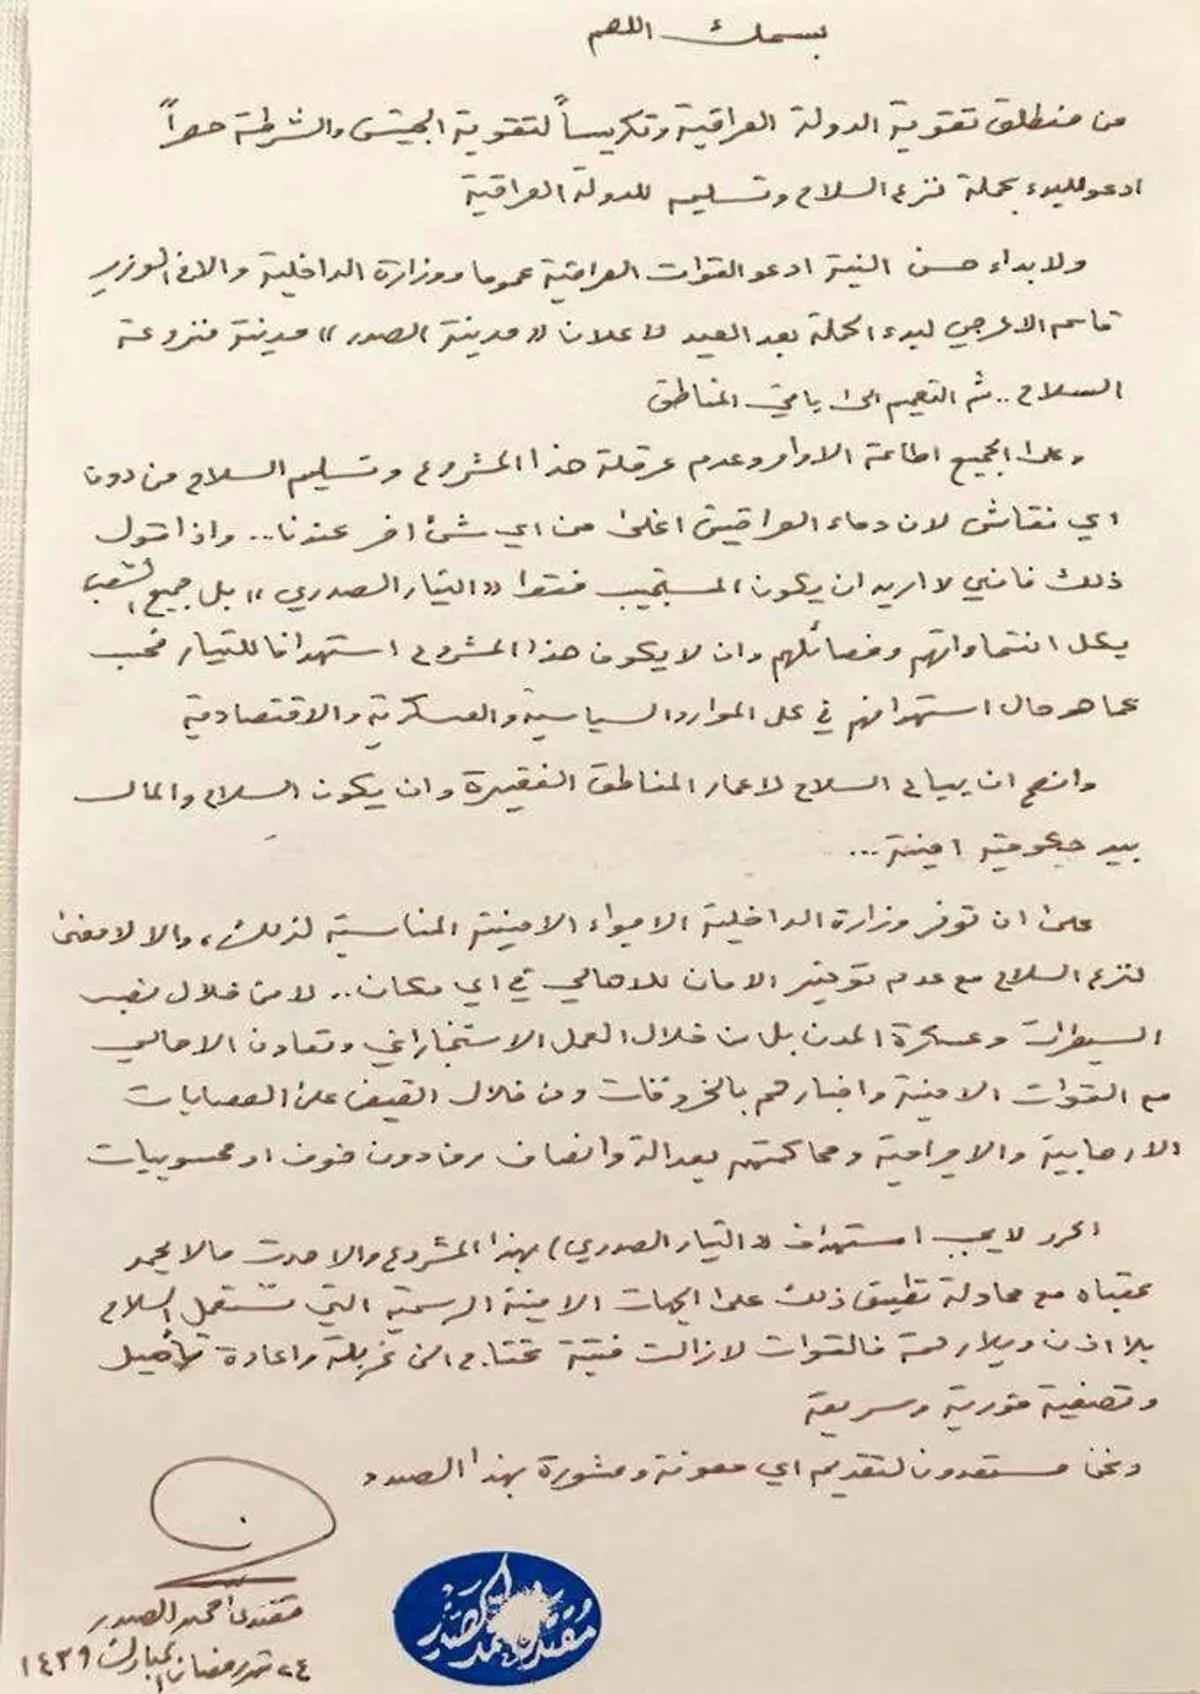 بسمك اللهم
من منطلق تقوية الدولة العراقية وتكريساً لتقوية الجيش والشرطة حصراً
ادعو للبدء بحملة نزع السلاح وتسليمه للدولة العراقية
ولابداء حسن النية ادعو القوات العراقية عموما ووزارة الداخلية والاخ الوزير
قاسم الاعرجي لبدء الحملة بعد العيد لاعلان «مدينة الصدر» مدينة منزوعة
السلاح .. ثم التعميم الى باقي المناطق
وعلى الجميع اطاعة الاوامر وعدم عرقلة هذا المشروع وتسليم السلاح من دون
اي نقاش لان دماء العراقيين اغلى من اي شئ اخر عندنا... واذ اقول
ذلك فانني لا اريد ان يكون المستجيب فقط «التيار الصدري» بل جميع الشعب
بكل انتماءاتهم وفصائلهم وان لا يكون هذا المشروع استهدافا للتيار فحسب
كما هو حال استهدافهم في كل الموارد السياسية والعسكرية والاقتصادية
وانصح ان يباع السلاح لاعمار المناطق الفقيرة وان يكون السلاح والمال
بيد حكومية امينة ...
على ان توفر وزارة الداخلية الاجواء الامنية المناسبة لذلك، والا لا معنى
لنزع السلاح مع عدم توفير الامان للاهالي في اي مكان .. لا من خلال نصب
السيطرات وعسكرة المدن بل من خلال العمل الاستخباراتي وتعاون الاهالي
مع القوات الامنية واخبارهم بالخروقات ومن خلال القبض على العصابات
الارهابية والاجرامية ومحاكمتهم بعدالة وانصاف ومن دون خوف او محسوبيات
اكرر لا يجب استهداف «التيار الصدري» بهذا المشروع والا حدث ما لا يحمد
عقباه مع محاولة تطبيق ذلك على الجهات الامنية الرسمية التي تستعمل السلاح
بلا اذن وبلا رحمة فالقوات لازالت فتية تحتاج الى غربلة واعادة تأهيل
وتصفية فورية وسريعة
ونحن مستعدون لتقديم اي معونة ومشورة بهذا الصدد
مقتدى الصدر
٢٤ شهر رمضان المبارك ١٤٣٩